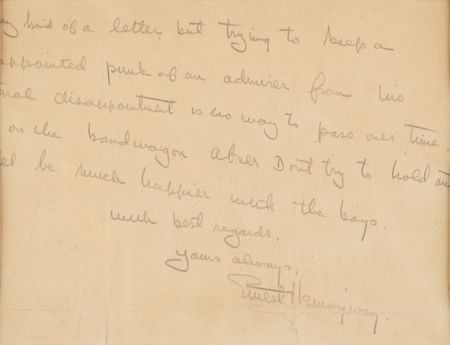 kind of a letter but trying to keep a
appointed punk of an admirer from his
disappointment is no way to pass ones time.
on the bandwagon Abner Dont try to hold out
be much happier with the boys.
with best regards,
yours always,
Ernest Hemingway.